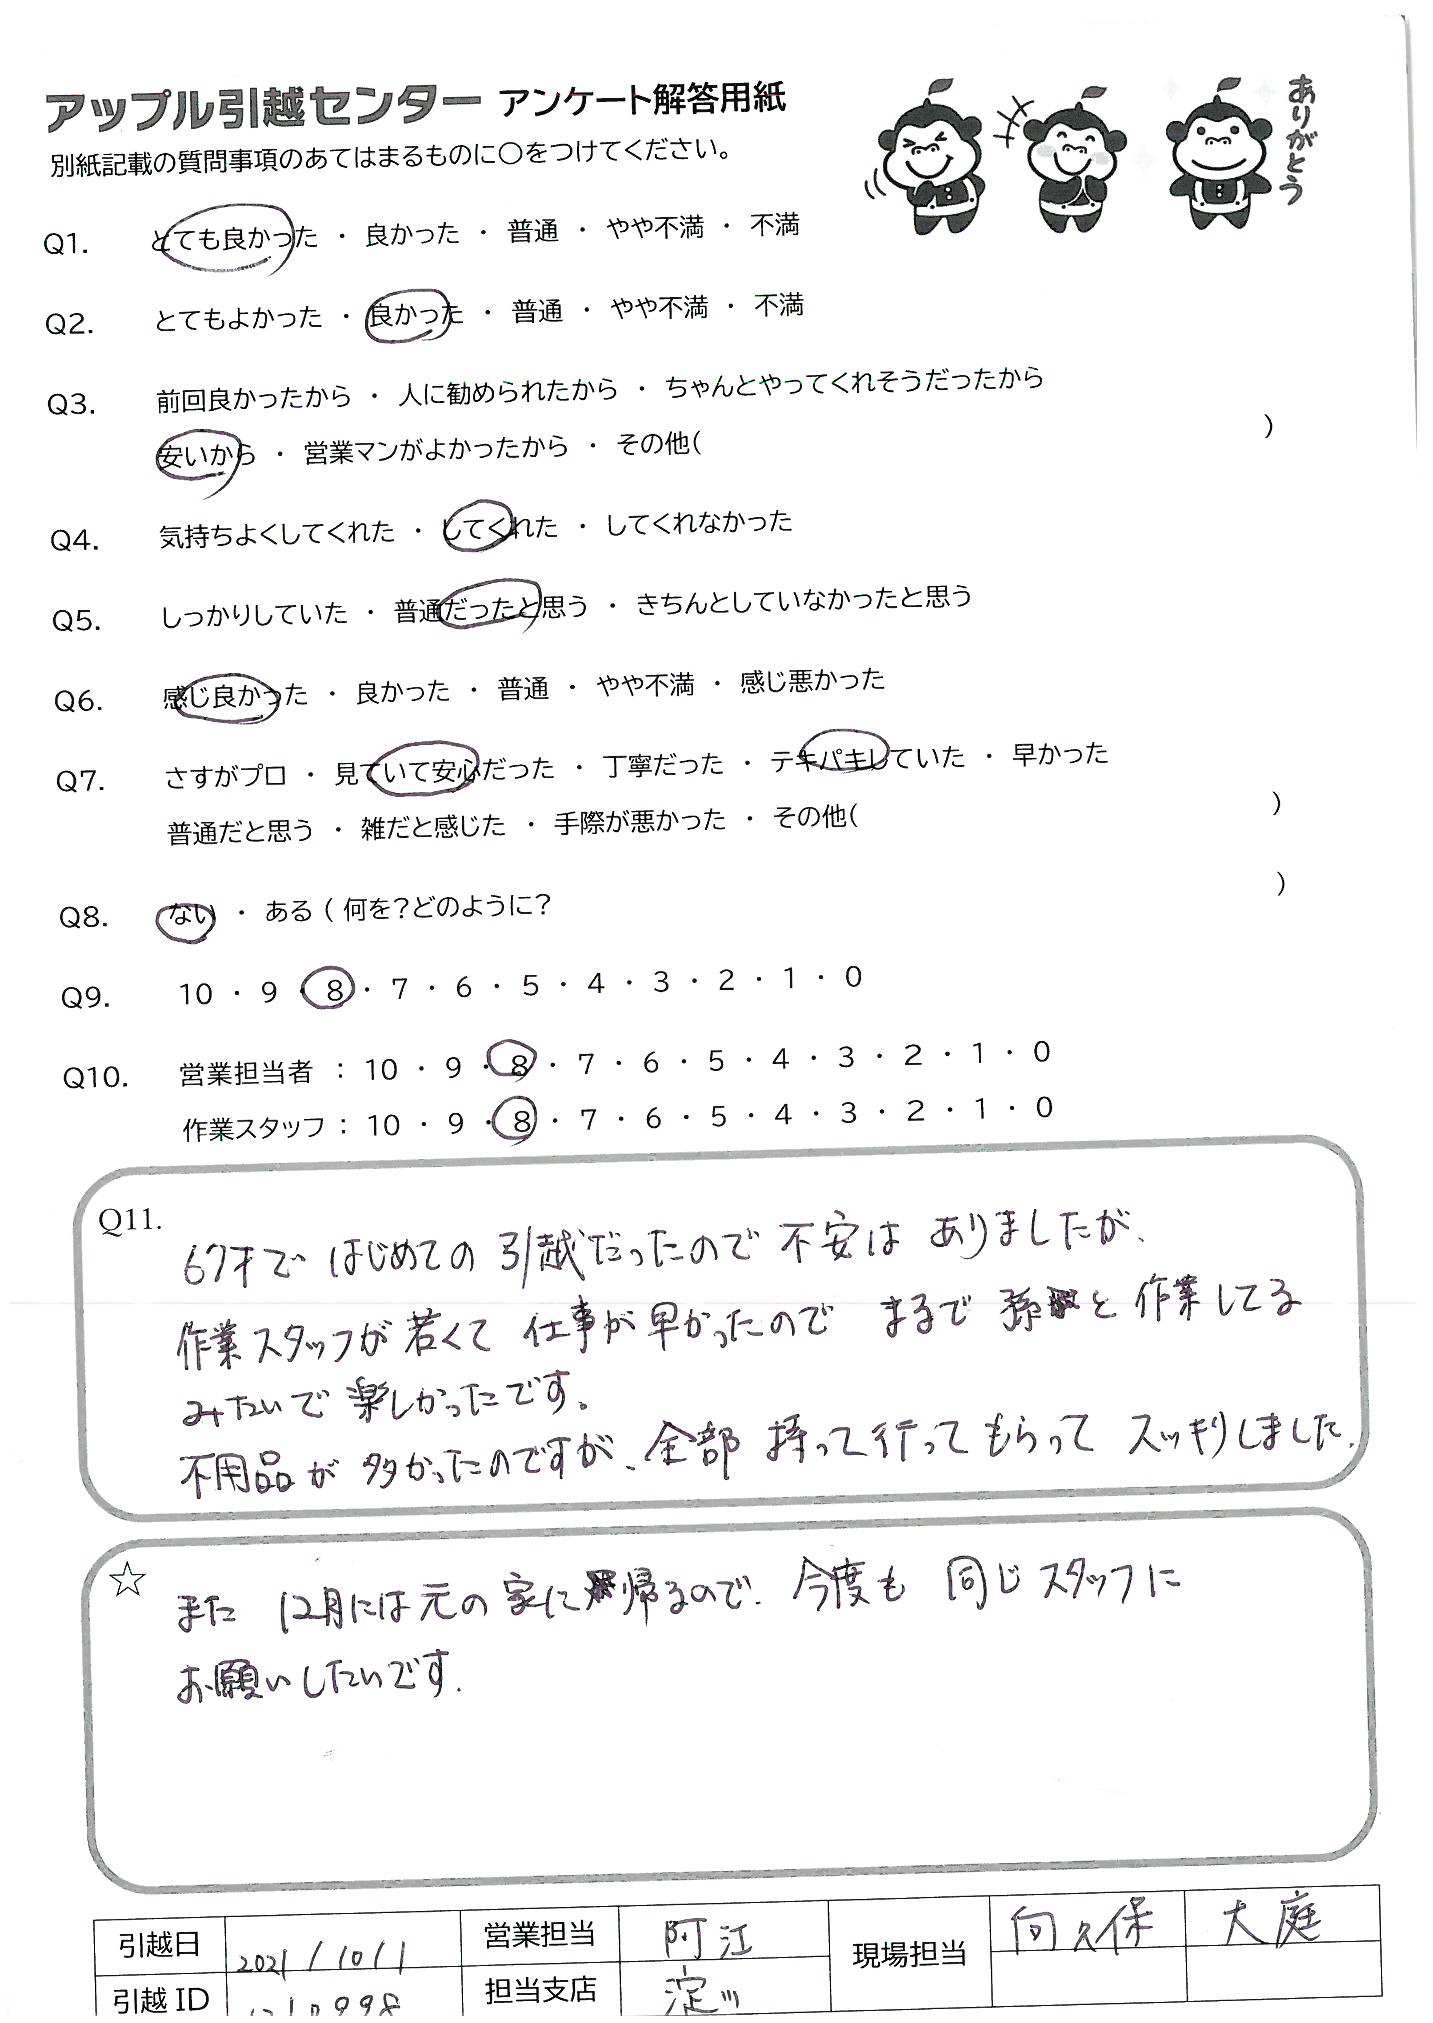 アップル引越センター アンケート解答用紙
ありがとう
別紙記載の質問事項のあてはまるものに○をつけてください。
Q1. とても良かった ・ 良かった ・ 普通 ・ やや不満 ・ 不満
Q2. とてもよかった ・ 良かった ・ 普通 ・ やや不満 ・ 不満
Q3. 前回良かったから ・ 人に勧められたから ・ ちゃんとやってくれそうだったから
安いから ・ 営業マンがよかったから ・ その他( )
Q4. 気持ちよくしてくれた ・ してくれた ・ してくれなかった
Q5. しっかりしていた ・ 普通だったと思う ・ きちんとしていなかったと思う
Q6. 感じ良かった ・ 良かった ・ 普通 ・ やや不満 ・ 感じ悪かった
Q7. さすがプロ ・ 見ていて安心だった ・ 丁寧だった ・ テキパキしていた ・ 早かった
普通だと思う ・ 雑だと感じた ・ 手際が悪かった ・ その他( )
Q8. ない ・ ある ( 何を?どのように? )
Q9. 10 ・ 9 ・ 8 ・ 7 ・ 6 ・ 5 ・ 4 ・ 3 ・ 2 ・ 1 ・ 0
Q10. 営業担当者 : 10 ・ 9 ・ 8 ・ 7 ・ 6 ・ 5 ・ 4 ・ 3 ・ 2 ・ 1 ・ 0
作業スタッフ : 10 ・ 9 ・ 8 ・ 7 ・ 6 ・ 5 ・ 4 ・ 3 ・ 2 ・ 1 ・ 0
Q11.
67才で はじめての 引越だったので 不安は ありましたが、
作業スタッフが 若くて 仕事が 早かったので まるで 孫と 作業してる
みたいで 楽しかったです。
不用品が 多かったのですが、全部 持って行って もらって スッキリしました.
☆
また 12月には 元の 家に 帰るので、今度も 同じ スタッフに
お願いしたいです.
引越日 2021/10/1 営業担当 阿江 現場担当 向久保 大庭
引越 ID 担当支店 淀川